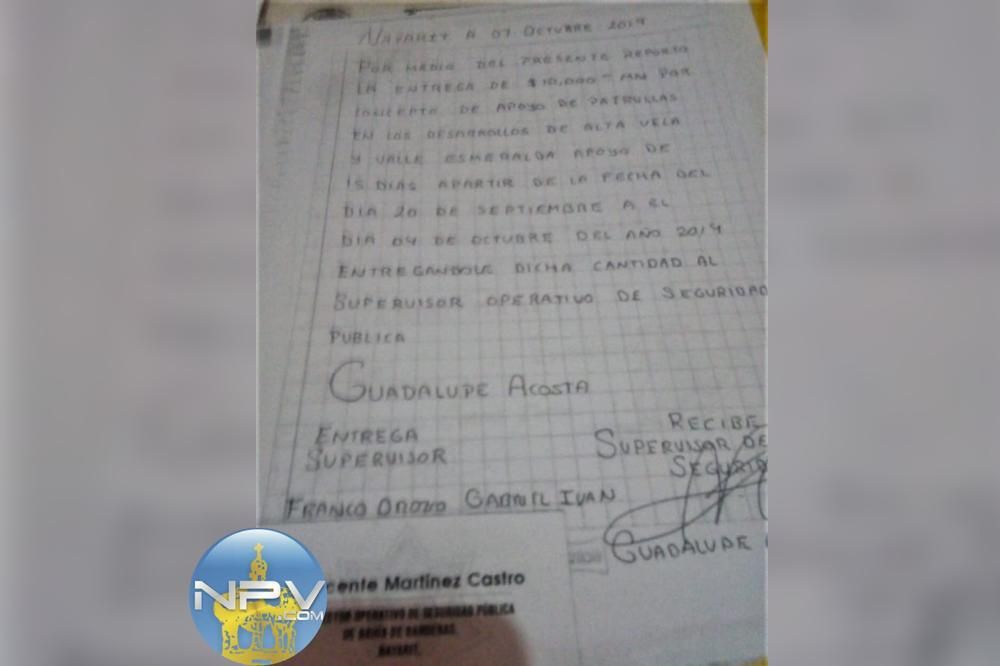 NAYARIT A 07 OCTUBRE 2019
POR MEDIO DEL PRESENTE REPORTO
LA ENTREGA DE $10,000 — MN POR
CONCEPTO DE APOYO DE PATRULLAS
EN LOS DESARROLLOS DE ALTA VELA
Y VALLE ESMERALDA APOYO DE
15 DIAS APARTIR DE LA FECHA DEL
DIA 20 DE SEPTIEMBRE A EL
DIA 04 DE OCTUBRE DEL AÑO 2019
ENTREGANDOLE DICHA CANTIDAD AL
SUPERVISOR OPERATIVO DE SEGURIDAD
PUBLICA
GUADALUPE ACOSTA
ENTREGA
SUPERVISOR
FRANCO OROZO GABRIEL IVAN
RECIBE
SUPERVISOR DE
SEGURID
GUADALUPE
cente Martínez Castro
TOR OPERATIVO DE SEGURIDAD PÚBLICA
DE BAHÍA DE BANDERAS,
NAYARIT.
NPV
.COM